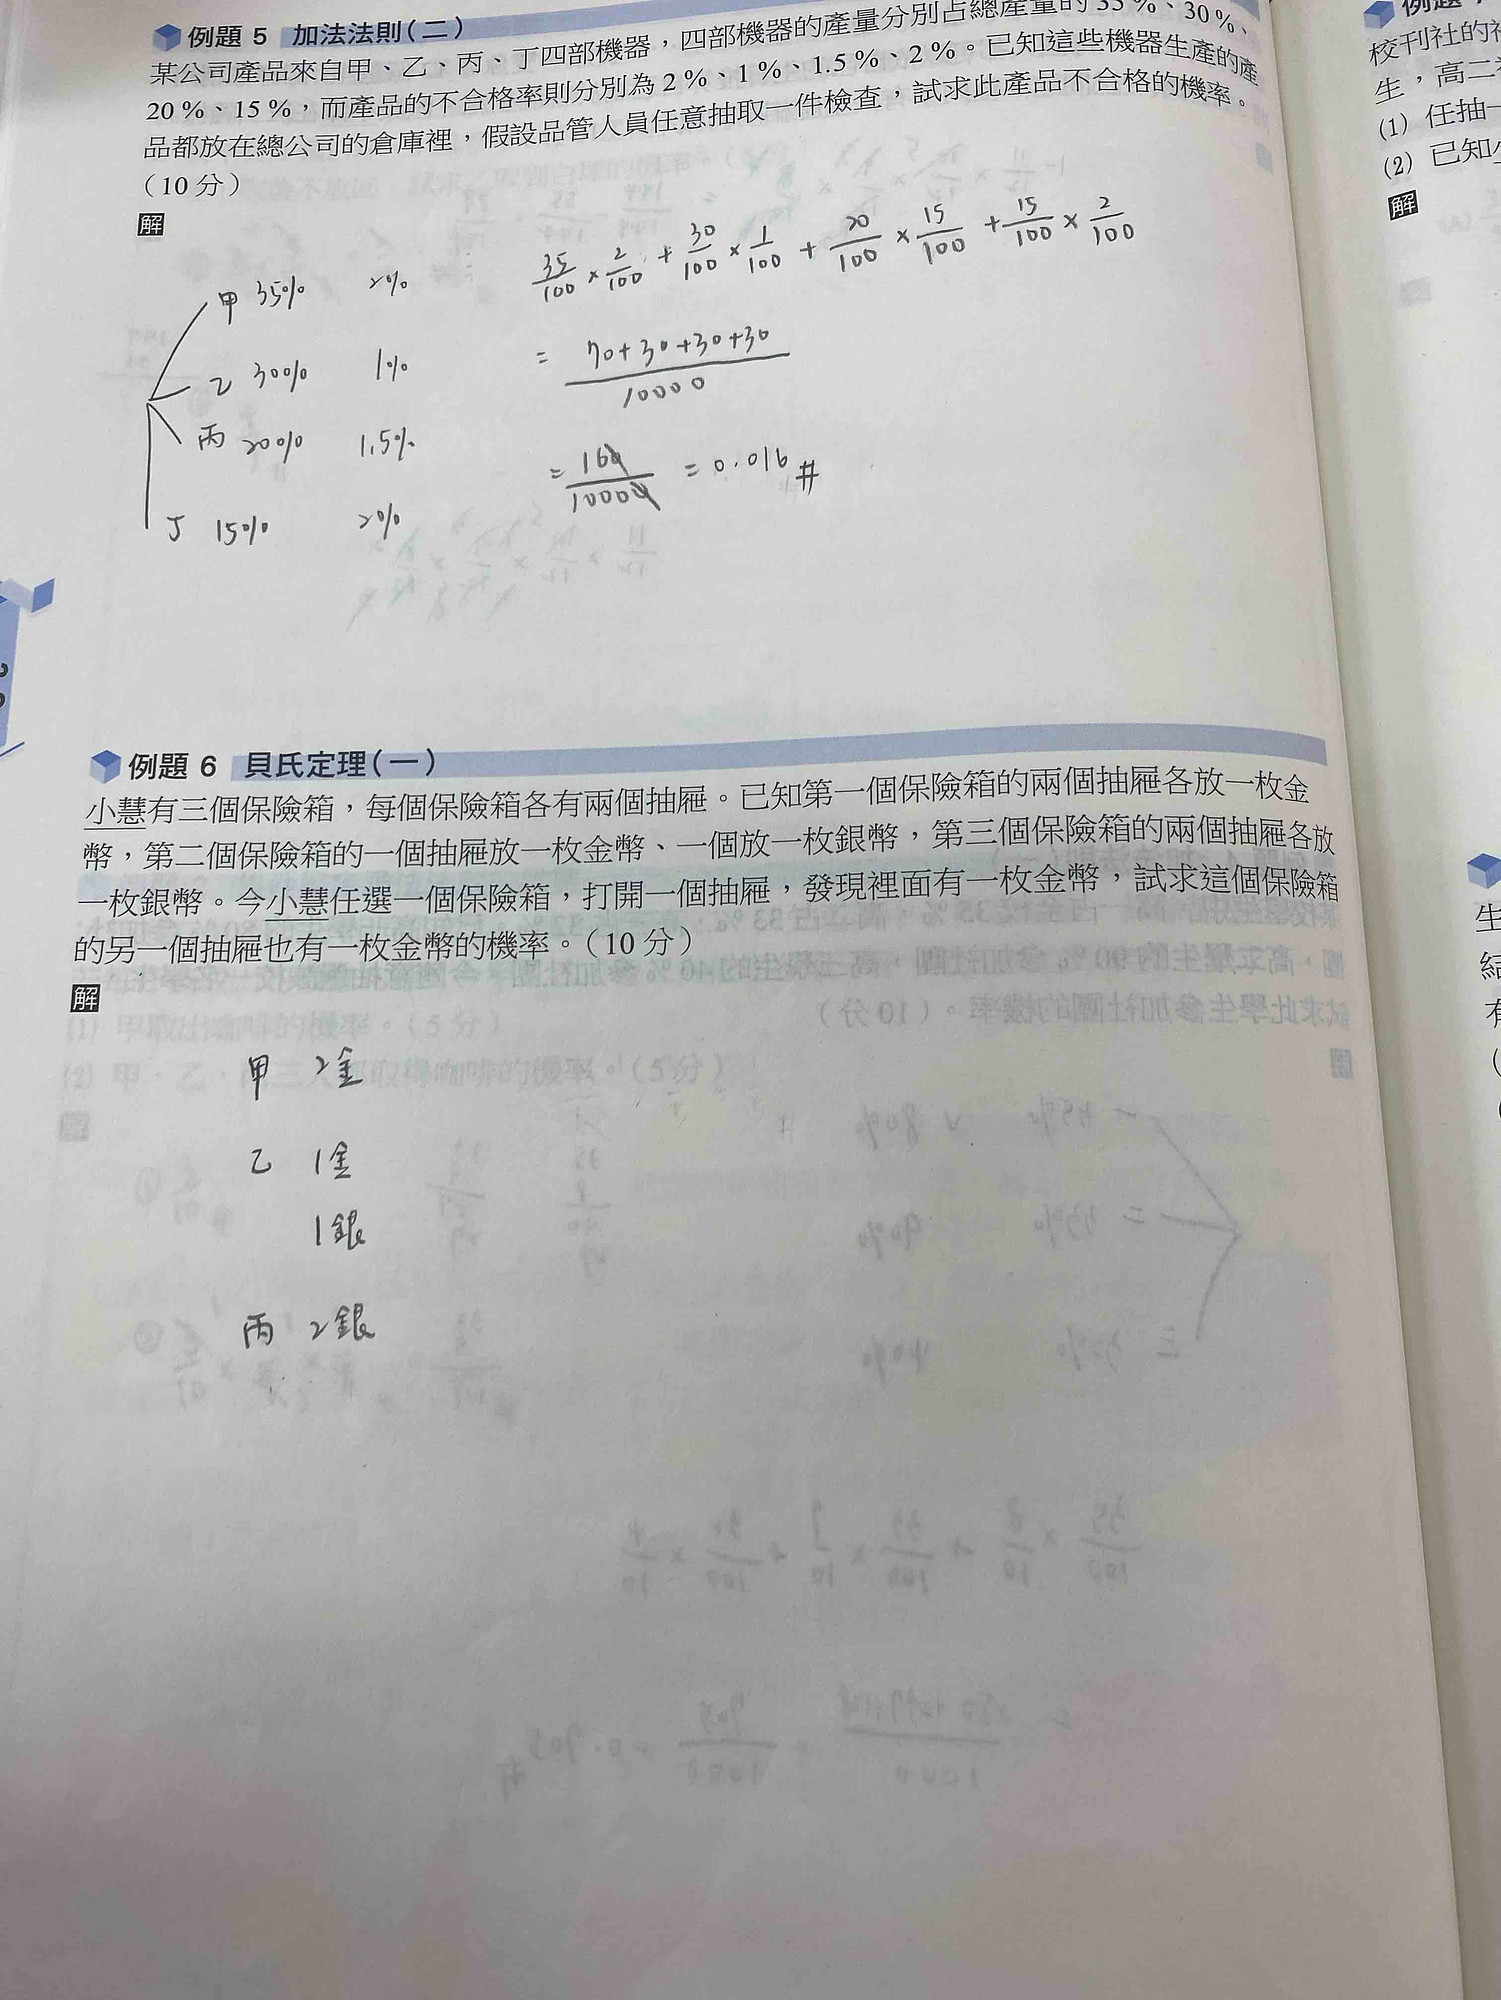 例題 5 加法法則(二)
某公司產品來自甲、乙、丙、丁四部機器，四部機器的產量分別占總產量的 35 %、30 %、
20 %、15 %，而產品的不合格率則分別為 2 %、1 %、1.5 %、2 %。已知這些機器生產的產
品都放在總公司的倉庫裡，假設品管人員任意抽取一件檢查，試求此產品不合格的機率。
(10 分)
解
甲 35% 2%
乙 30% 1%
丙 20% 1.5%
丁 15% 2%
35/100 × 2/100 + 30/100 × 1/100 + 20/100 × 15/100 + 15/100 × 2/100
= 70+30+30+30/10000
= 160/10000 = 0.016 #
例題 6 貝氏定理(一)
小慧有三個保險箱，每個保險箱各有兩個抽屜。已知第一個保險箱的兩個抽屜各放一枚金
幣，第二個保險箱的一個抽屜放一枚金幣、一個放一枚銀幣，第三個保險箱的兩個抽屜各放
一枚銀幣。今小慧任選一個保險箱，打開一個抽屜，發現裡面有一枚金幣，試求這個保險箱
的另一個抽屜也有一枚金幣的機率。(10 分)
解
甲 2金
乙 1金
1銀
丙 2銀
例題
校刊社的
生，高二
(1) 任抽一
(2) 已知
解
生
結
有